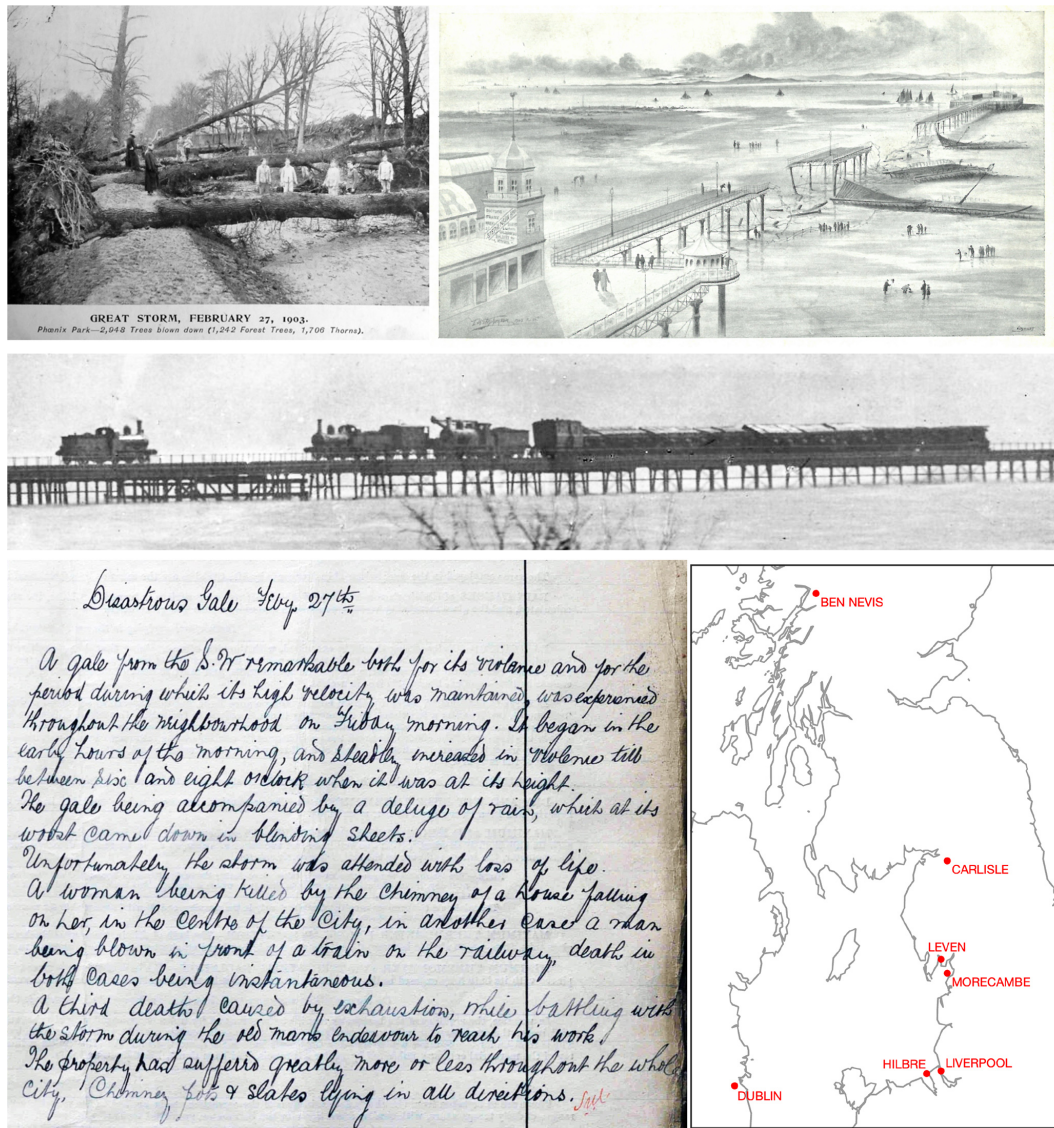 GREAT STORM, FEBRUARY 27, 1903.
Phœnix Park—2,948 Trees blown down (1,242 Forest Trees, 1,706 Thorns).
Disastrous Gale Feby. 27th
A gale from the S.W remarkable both for its violence and for the
period during which its high velocity was maintained, was experienced
throughout the neighbourhood on Friday morning. It began in the
early hours of the morning, and steadily increased in violence till
between six and eight oclock when it was at its height.
The gale being accompanied by a deluge of rain, which at its
worst came down in blending sheets.
Unfortunately the storm was attended with loss of life.
A woman being killed by the chimney of a house falling
on her, in the centre of the City, in another case a man
being blown in front of a train on the railway, death in
both cases being instantaneous.
A third death caused by exhaustion, while battling with
the storm during the old mans endeavour to reach his work.
The property has sufferd greatly more or less throughout the whole
City. Chimney pots & slates lying in all directions.
BEN NEVIS
CARLISLE
LEVEN
MORECAMBE
HILBRE
LIVERPOOL
DUBLIN